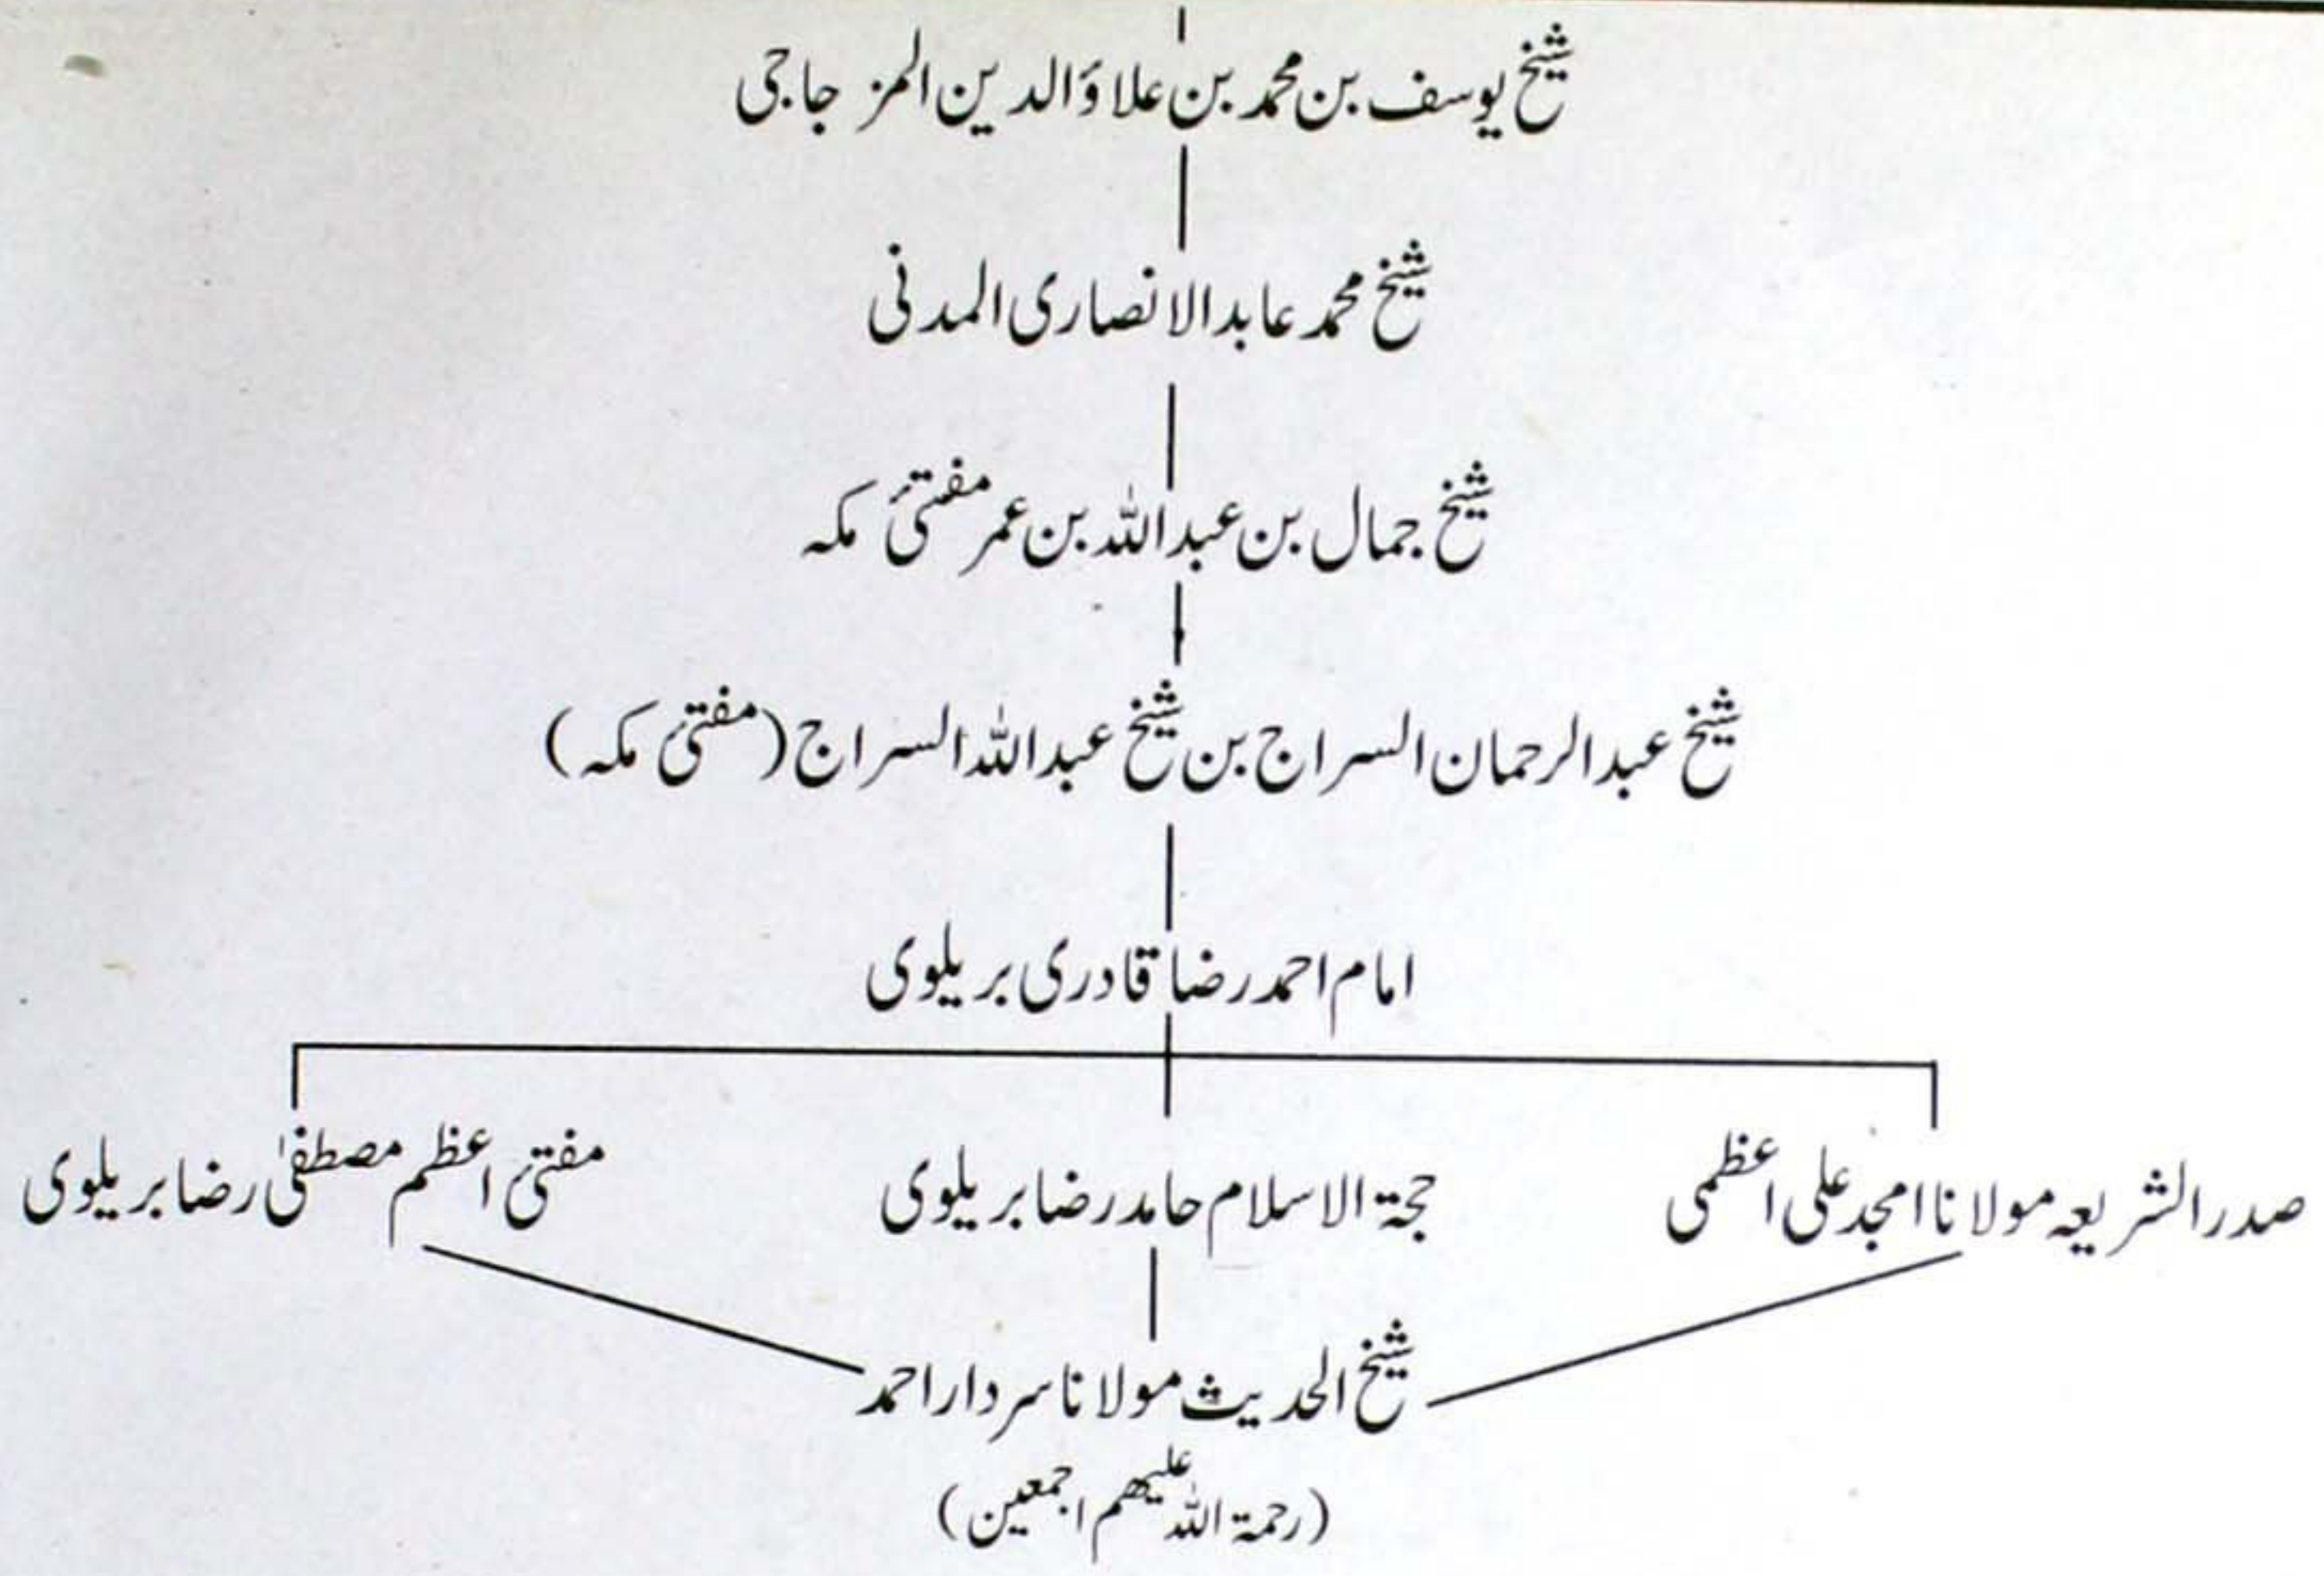 شیخ یوسف بن محمد بن علاؤ الدین المزجاجی
شیخ محمد عابد الانصاری المدنی
شیخ جمال بن عبداللہ بن عمر مفتیٔ مکہ
شیخ عبدالرحمان السراج بن شیخ عبداللہ السراج (مفتیٔ مکہ)
امام احمد رضا قادری بریلوی
صدر الشریعہ مولانا امجد علی اعظمی
حجۃ الاسلام حامد رضا بریلوی
مفتیٔ اعظم مصطفیٰ رضا بریلوی
شیخ الحدیث مولانا سردار احمد
(رحمۃ اللہ علیھم اجمعین)